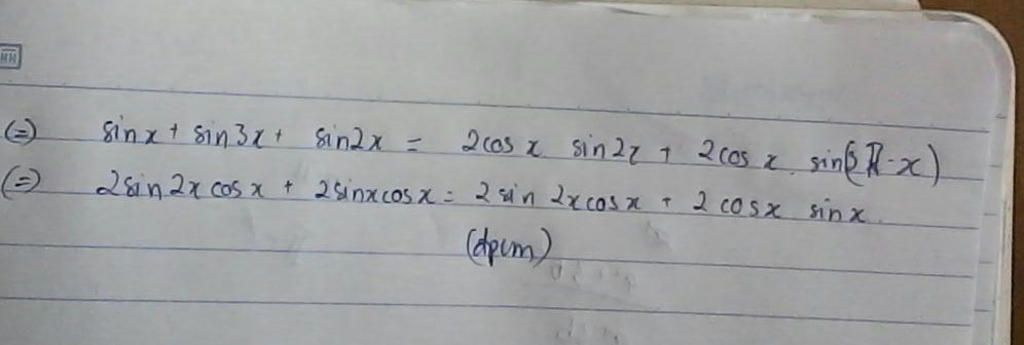 (=) sinx + sin3x + sin2x = 2cosx sin2x + 2cosx. sin(3π-x)
(=) 2sin2xcosx + 2sinxcosx = 2sin2xcosx + 2cosx sinx.
(dpcm)